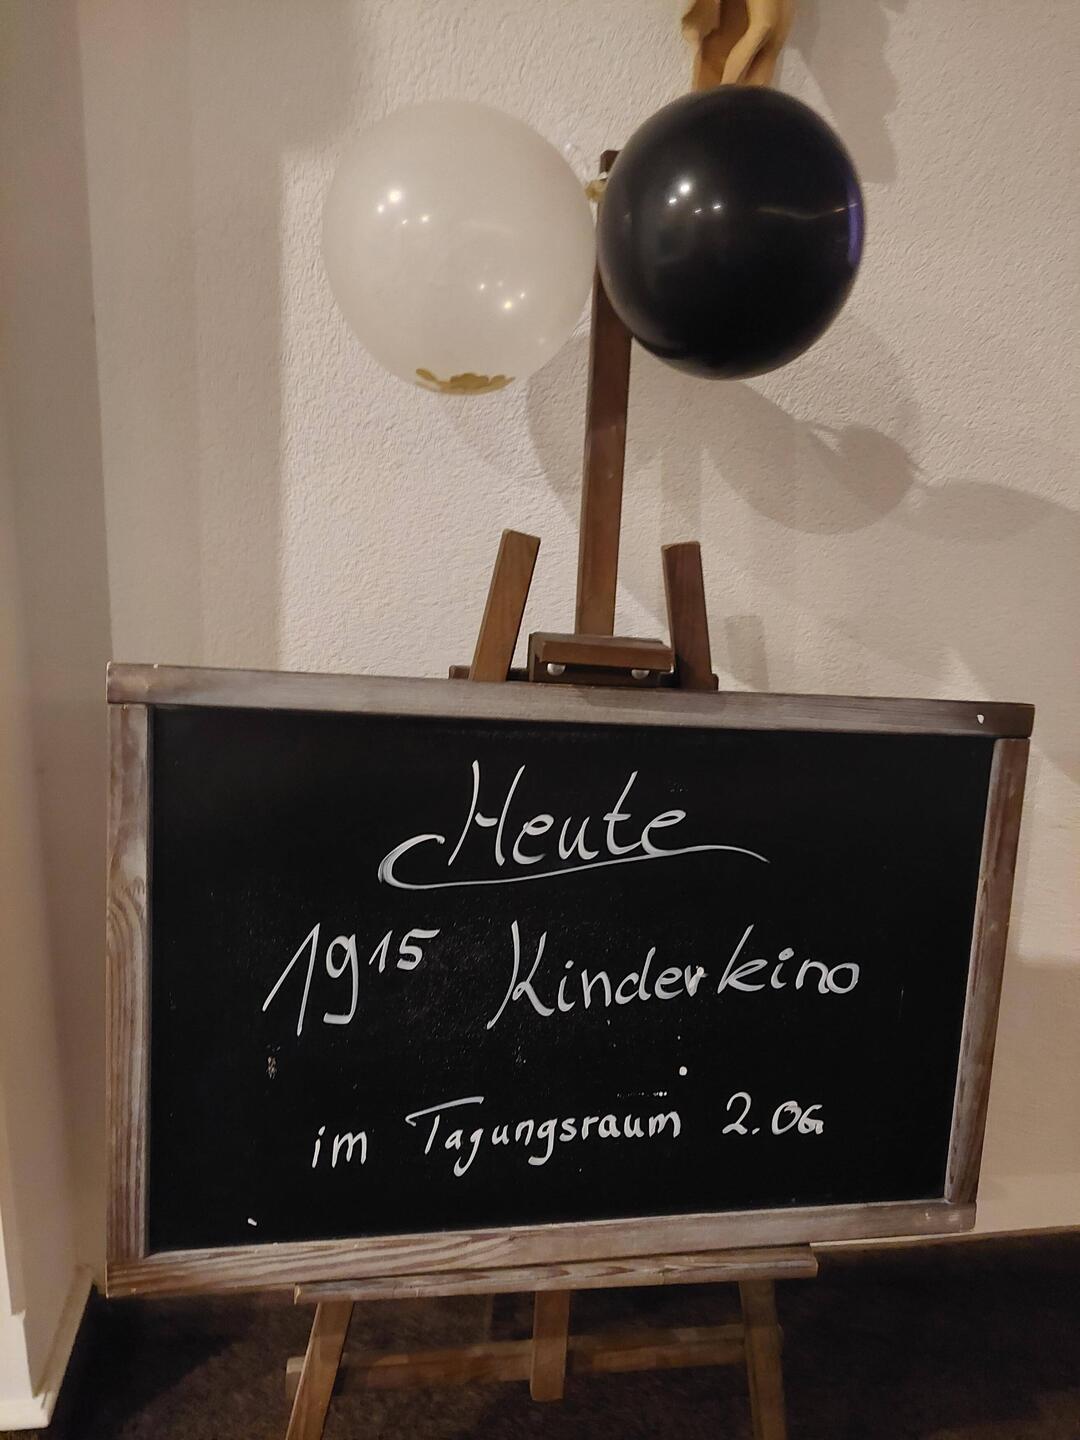 Heute
19¹⁵ Kinderkino
im Tagungsraum 2.OG